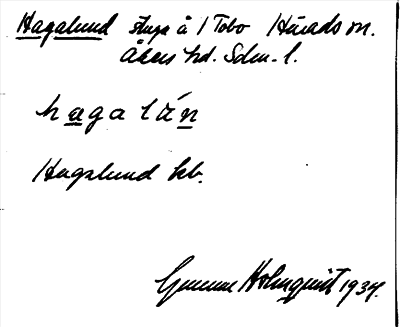 Hagalund stuga å 1 Tobo Härads sn.
Åkers hd. Sdm. l.
hagalún
Hagalund kb.
Gunnar Holmquist 1934.